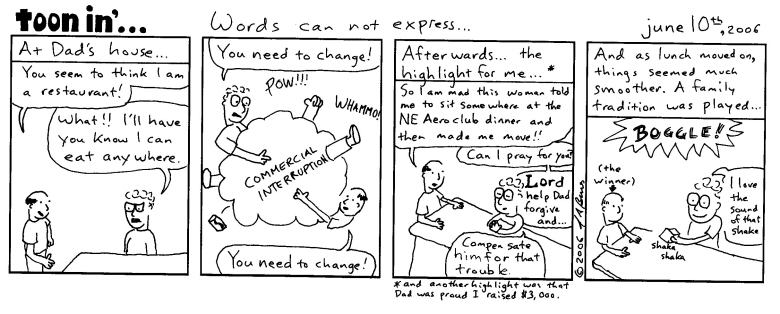 toon in'...
Words can not express...
june 10th, 2006
At Dad's house...
You seem to think I am
a restaurant!
What!! I'll have
you know I can
eat anywhere.
You need to change!
POW!!!
WHAMMO!
COMMERCIAL
INTERRUPTION
You need to change!
Afterwards... the
highlight for me...*
So I am mad this woman told
me to sit somewhere at the
NE Aeroclub dinner and
then made me move!!
Can I pray for you?
Lord
help Dad
forgive
and...
Compensate
him for that
trouble.
*and another highlight was that
Dad was proud I raised $3,000.
© 2006
And as lunch moved on,
things seemed much
smoother. A family
tradition was played...
BOGGLE!!
(the
winner)
I love
the
sound
of that
shake
shaka
shaka